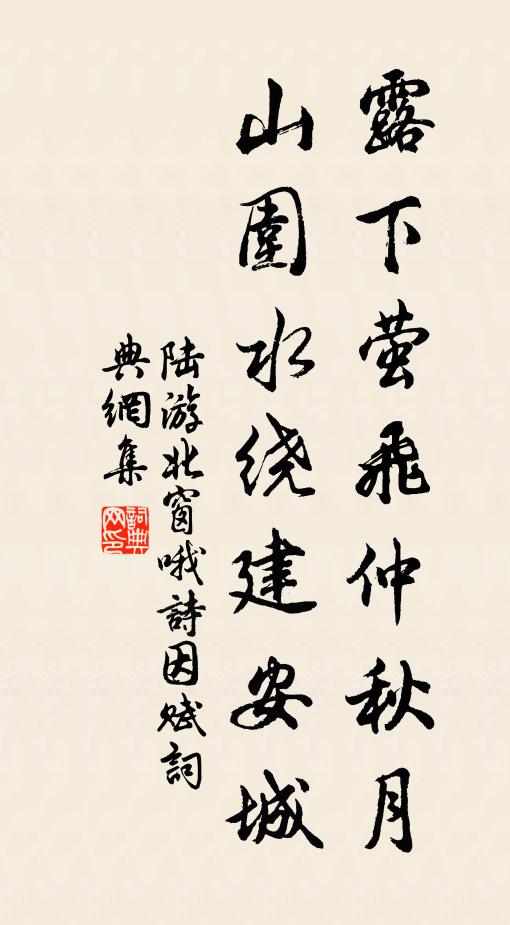 露下萤飛仲秋月
山圍水绕建安城
陆游北窗哦詩因赋詞
典網集
詞典网印